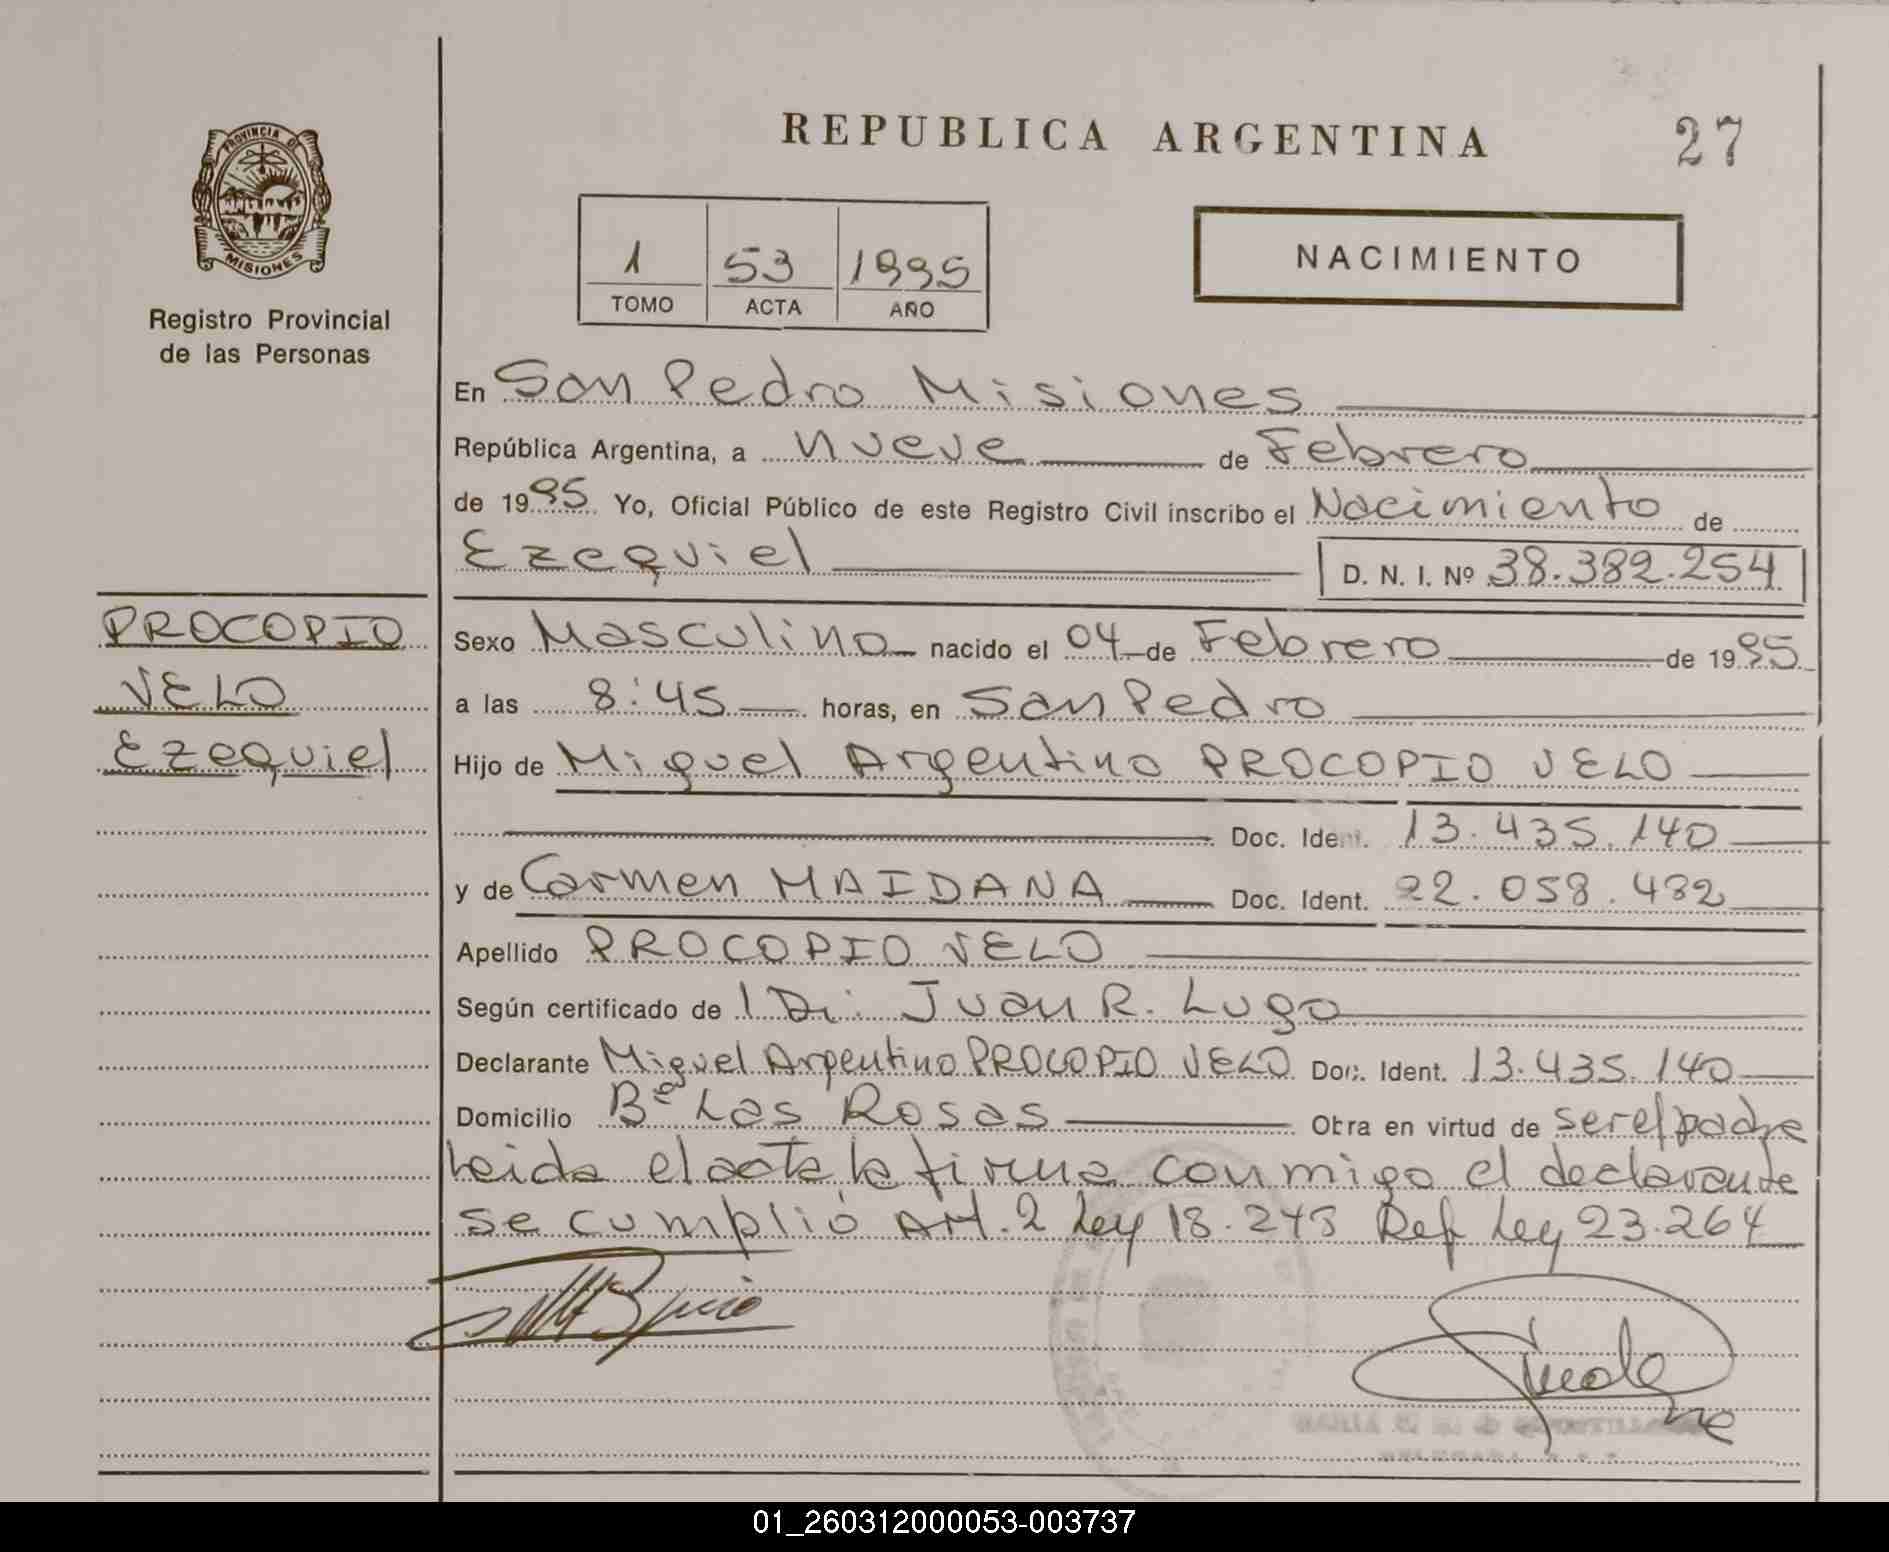 REPUBLICA ARGENTINA
27
PROVINCIA DE
MISIONES
Registro Provincial
de las Personas
1 53 1995
TOMO ACTA AÑO
NACIMIENTO
En San Pedro Misiones
República Argentina, a nueve de Febrero
de 1995 Yo, Oficial Público de este Registro Civil inscribo el Nacimiento de
Ezequiel D. N. I. Nº 38.382.254
PROCOPIO
VELO
Ezequiel
Sexo Masculino nacido el 04 de Febrero de 1995
a las 8:45 horas, en San Pedro
Hijo de Miguel Argentino PROCOPIO VELO
Doc. Ident. 13.435.140
y de Carmen MAIDANA Doc. Ident. 22.058.482
Apellido PROCOPIO VELO
Según certificado de Juan R. Lugo
Declarante Miguel Argentino PROCOPIO VELO Doc. Ident. 13.435.140
Domicilio Bº Las Rosas Obra en virtud de ser el padre
Leida el acta la firma conmigo el declarante
se cumplió Art. 2 Ley 18.248 Ref Ley 23.264
01_260312000053-003737